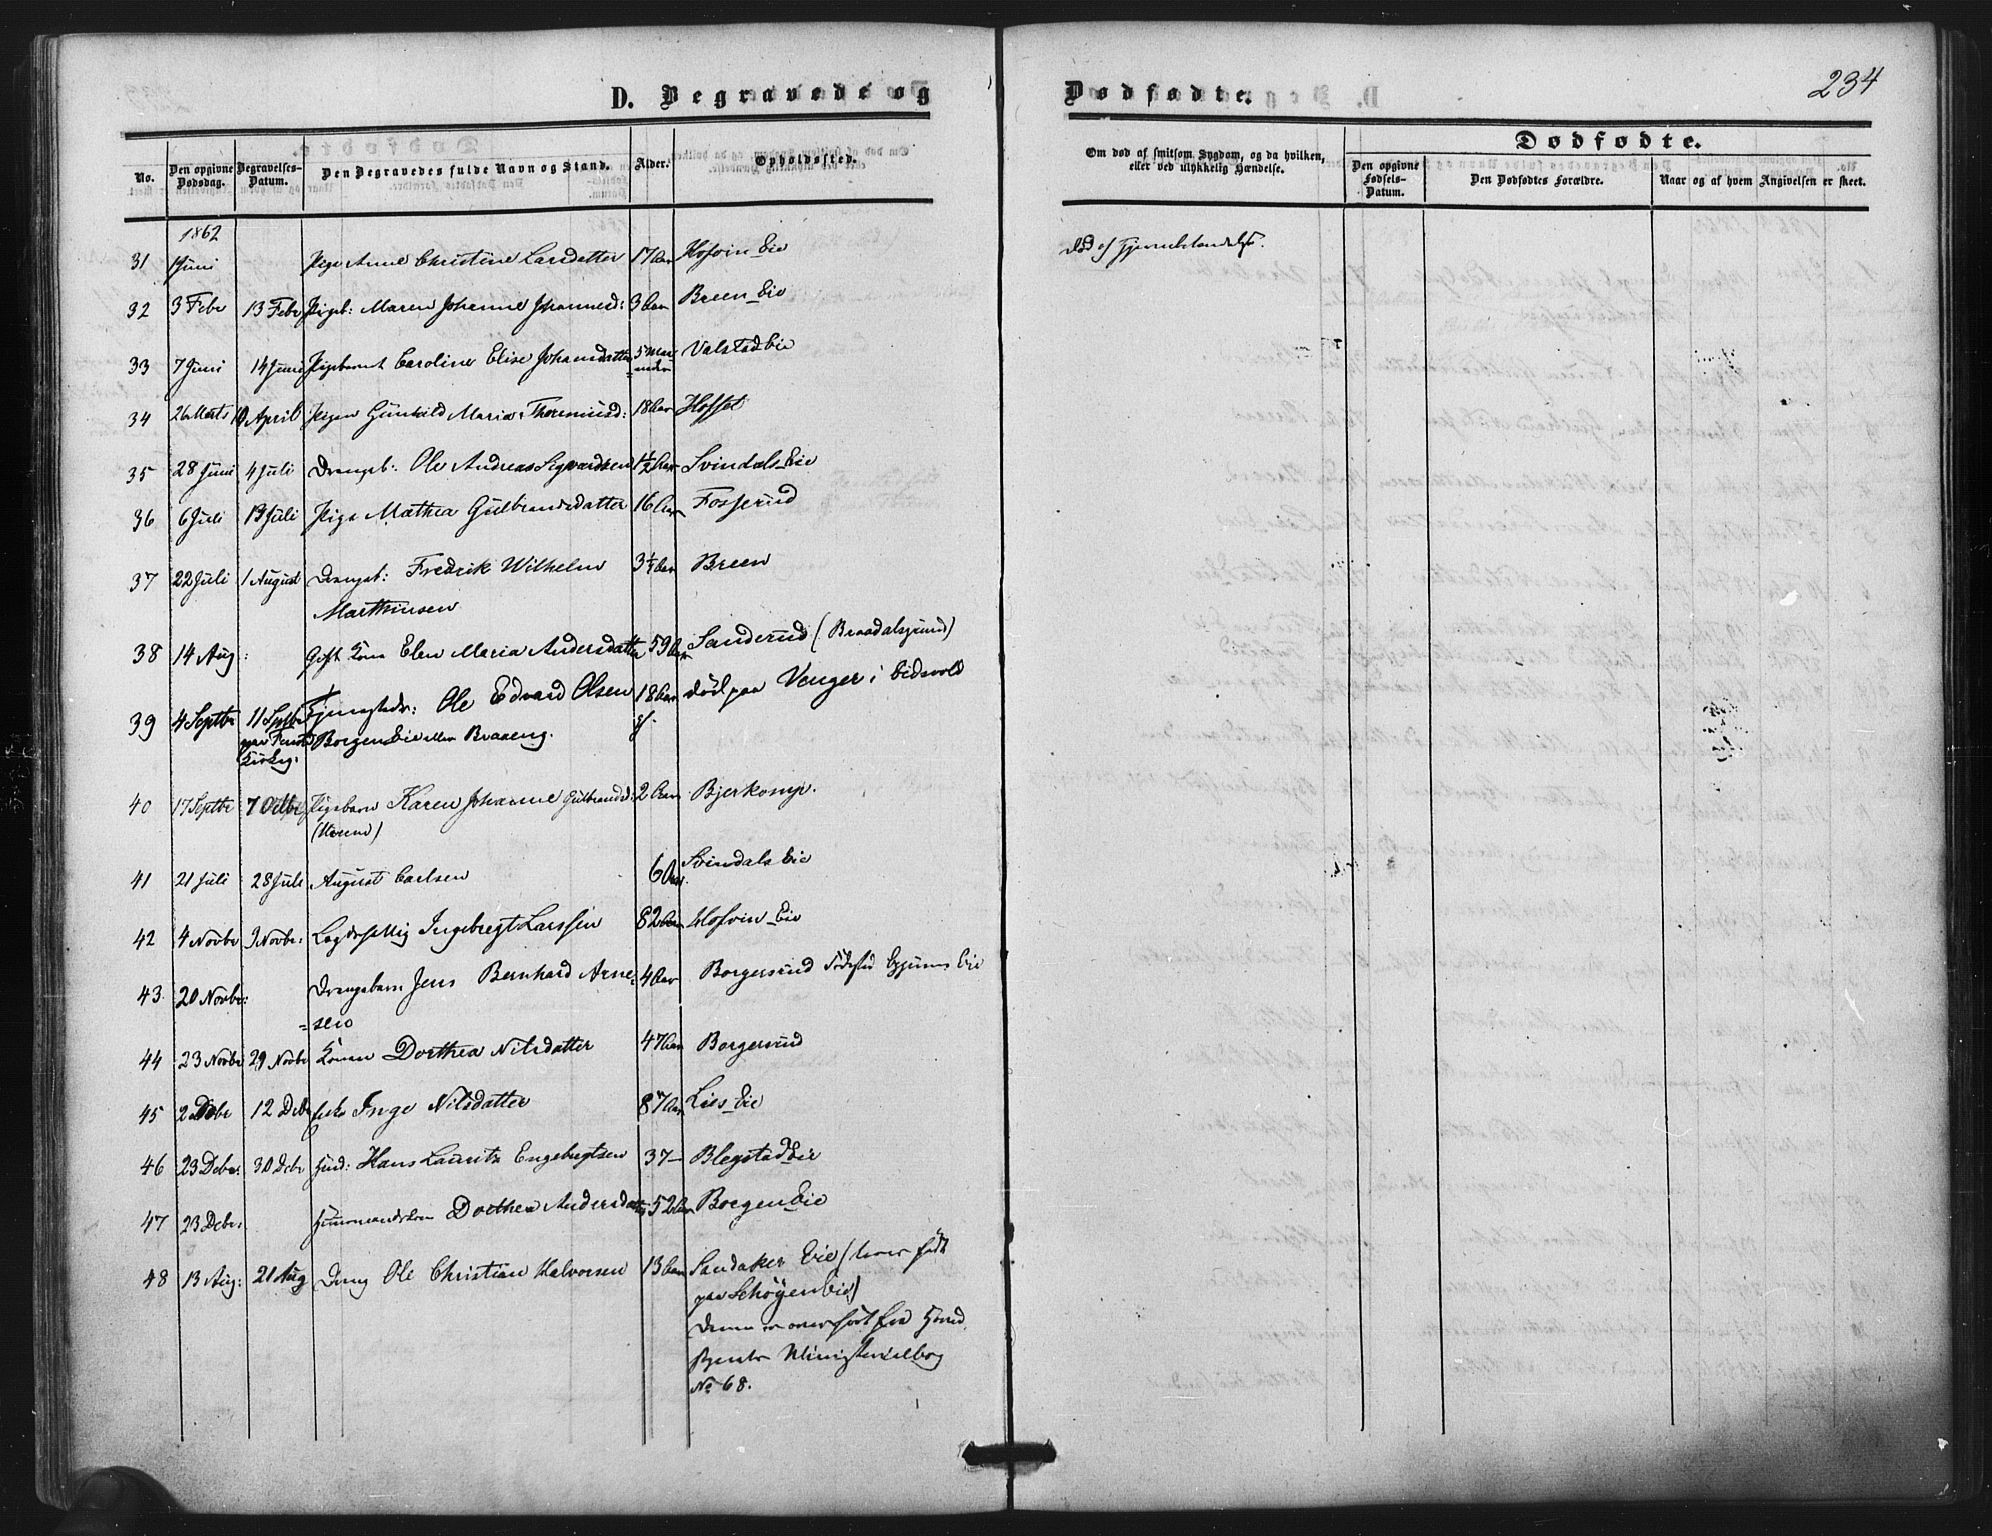 D. Begravede og
Dødfødte.
234
No.
Den opgivne Dødsdag.
Begravelses-Datum.
Den Begravedes fulde Navn og Stand.
Alder.
Opholdssted.
Om død af smitsom Sygdom, og da hvilken, eller ved ulykkelig Hændelse.
Dødfødte.
Den opgivne Fødsels-Datum.
Den Dødfødtes Forældre.
Naar og af hvem Angivelsen er skeet.
1862
31 1 Juni Pige Anne Christine Larsdatter 17 Aar Hofvin Eie
død af
32 3 Febr 13 Febr Pigeb: Maren Johanne Johannesd: 3 Aar Breen Eie
33 7 Juni 14 Juni Pigebarnet Caroline Elise Johansdatter 5 Maaneder Valstad Eie
34 26 Marts April Pigen Gunhild Maria 18 Aar Hofset
35 28 Juni 4 Juli Drengeb: Ole Andreas Sigvardsen 1½ Aar Svindals Eie
36 6 Juli 13 Juli Pige Mathea Gulbrandsdatter 16 Aar Fosserud
37 22 Juli 1 August Drengeb: Fredrik Wilhelm 3¼ Aar Breen
Marthinsen
38 14 Aug: Gift Kone Elen Maria Andersdatter 59 Aar Sanderud (Braadalsgrund)
39 4 Septbr 11 Septbr Ole Edvard Olsen 18 Aar død paa Venger i Eidsvold
paa Kirkeg: Borgen Eie eller Braaeng. gl.
40 17 Septbr 7 Octbr Pigebarn Karen Johanne Gulbrandsd: 2 Aar Bjerkomp.
41 21 Juli 28 Juli August Carlsen 6 Aar. Svindals Eie
42 4 Novbr 9 Novbr: Lægdslem Ingebregt Larssen 82 Aar Hofvin Eie
43 20 Novbr: Drengebarn Jens Bernhard Arne= 4 Aar Borgersrud Fødested Eie
=sen
44 23 Novbr 29 Novbr Konen Dorthea Nilsdatter 47 Aar Borgersrud
45 2 Debr 12 Debr Enke Inge Nilsdatter 87 Aar Lies Eie
46 23 Debr: 30 Debr Hans Lauritz Engebregtsen 37– Blegstad Eie
47 23 Debr: Huusmandskone Dorthea Andersdatter 52 Aar Borgen Eie
48 13 Aug: 21 Aug Dreng Ole Christian Halvorsen 13 Aar Sandaker Eie (hvor født
paa Schøyen Eie)
Denne er overført fra
Ministerialbog
No 68.